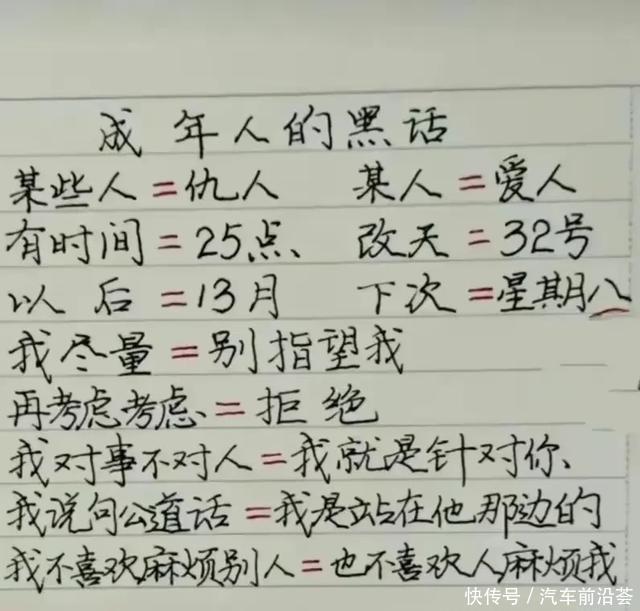 成年人的黑话
某些人=仇人 某人=爱人
有时间=25点、 改天=32号
以后=13月 下次=星期八
我尽量=别指望我
再考虑考虑、=拒绝
我对事不对人=我就是针对你、
我说句公道话=我是站在他那边的
我不喜欢麻烦别人=也不喜欢人麻烦我
快传号/汽车前沿荟